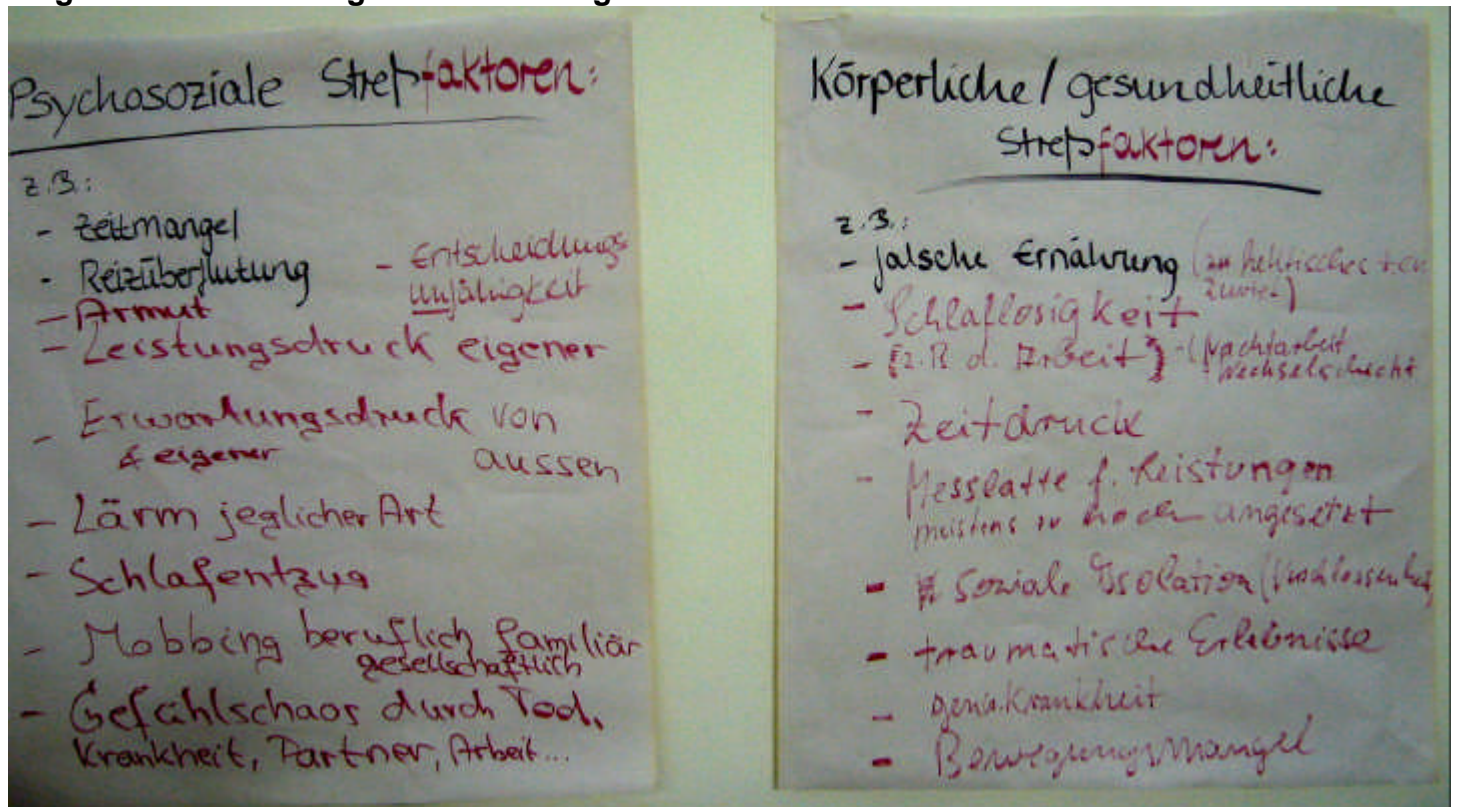 Psychosoziale Streßfaktoren:
z.B.:
- Zeitmangel
- Reizüberflutung
- Entscheidungs
unfähigkeit
- Armut
- Leistungsdruck eigener
- Erwartungsdruck von
& eigener aussen
- Lärm jeglicher Art
- Schlafentzug
- Mobbing beruflich familiär
gesellschaftlich
- Gefühlschaos durch Tod,
Krankheit, Partner, Arbeit...
Körperliche / gesundheitliche
Streßfaktoren:
z.B.:
- falsche Ernährung (zu
zuviel)
- Schlaflosigkeit
- (z.B. d. Arbeit) - (Nachtarbeit
Wechselschicht
- Zeitdruck
- Messlatte f. Leistungen
meistens zu hoch angesetzt
- soziale Isolation (
- traumatische Erlebnisse
- Krankheit
- Bewegungsmangel